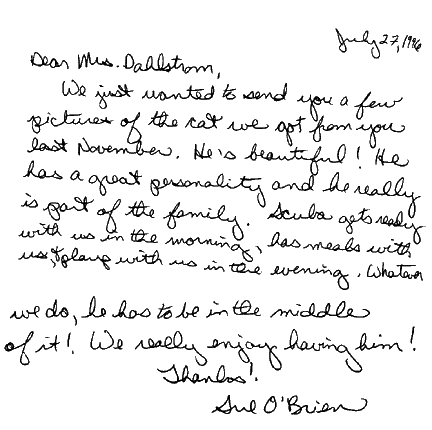 July 27, 1996
Dear Mrs. Dahlstrom,
We just wanted to send you a few
pictures of the cat we got from you
last November. He's beautiful! He
has a great personality and he really
is part of the family. Scuba gets ready
with us in the morning, has meals with
us, & plays with us in the evening. Whatever
we do, he has to be in the middle
of it! We really enjoy having him!
Thanks!
Sue O'Brien